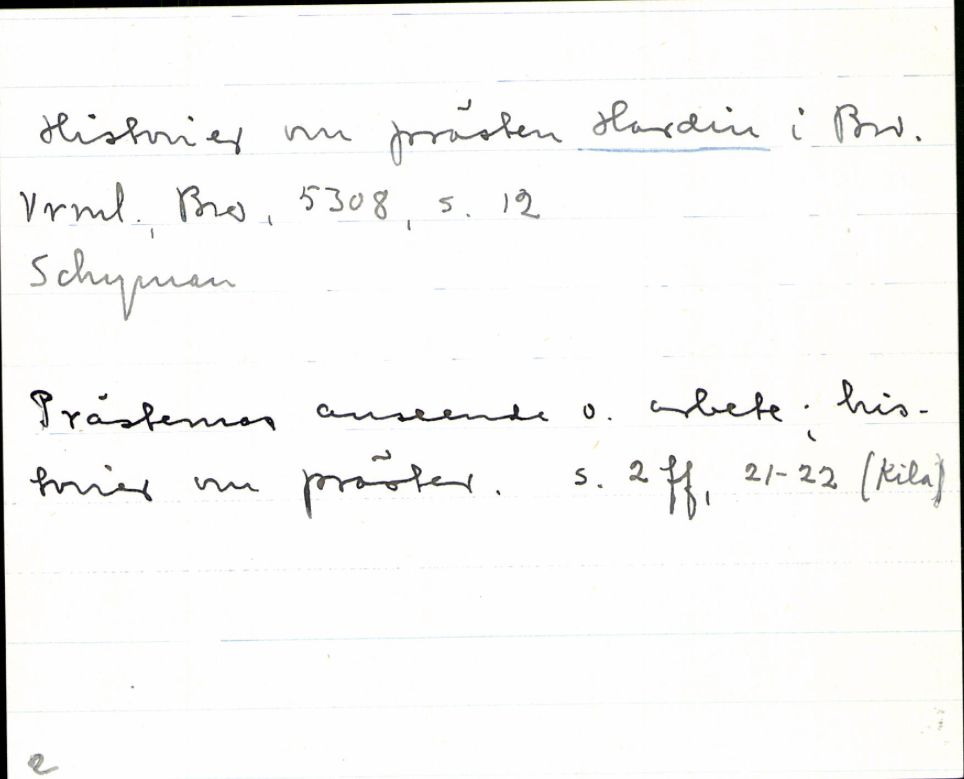 Historier om prästen Hardin i Bro.
Vrml., Bro, 5308, s. 12
Schyman
Prästernas anseende o. arbete; his-
torier om präster. s. 2 ff, 21-22 (Kila)
e